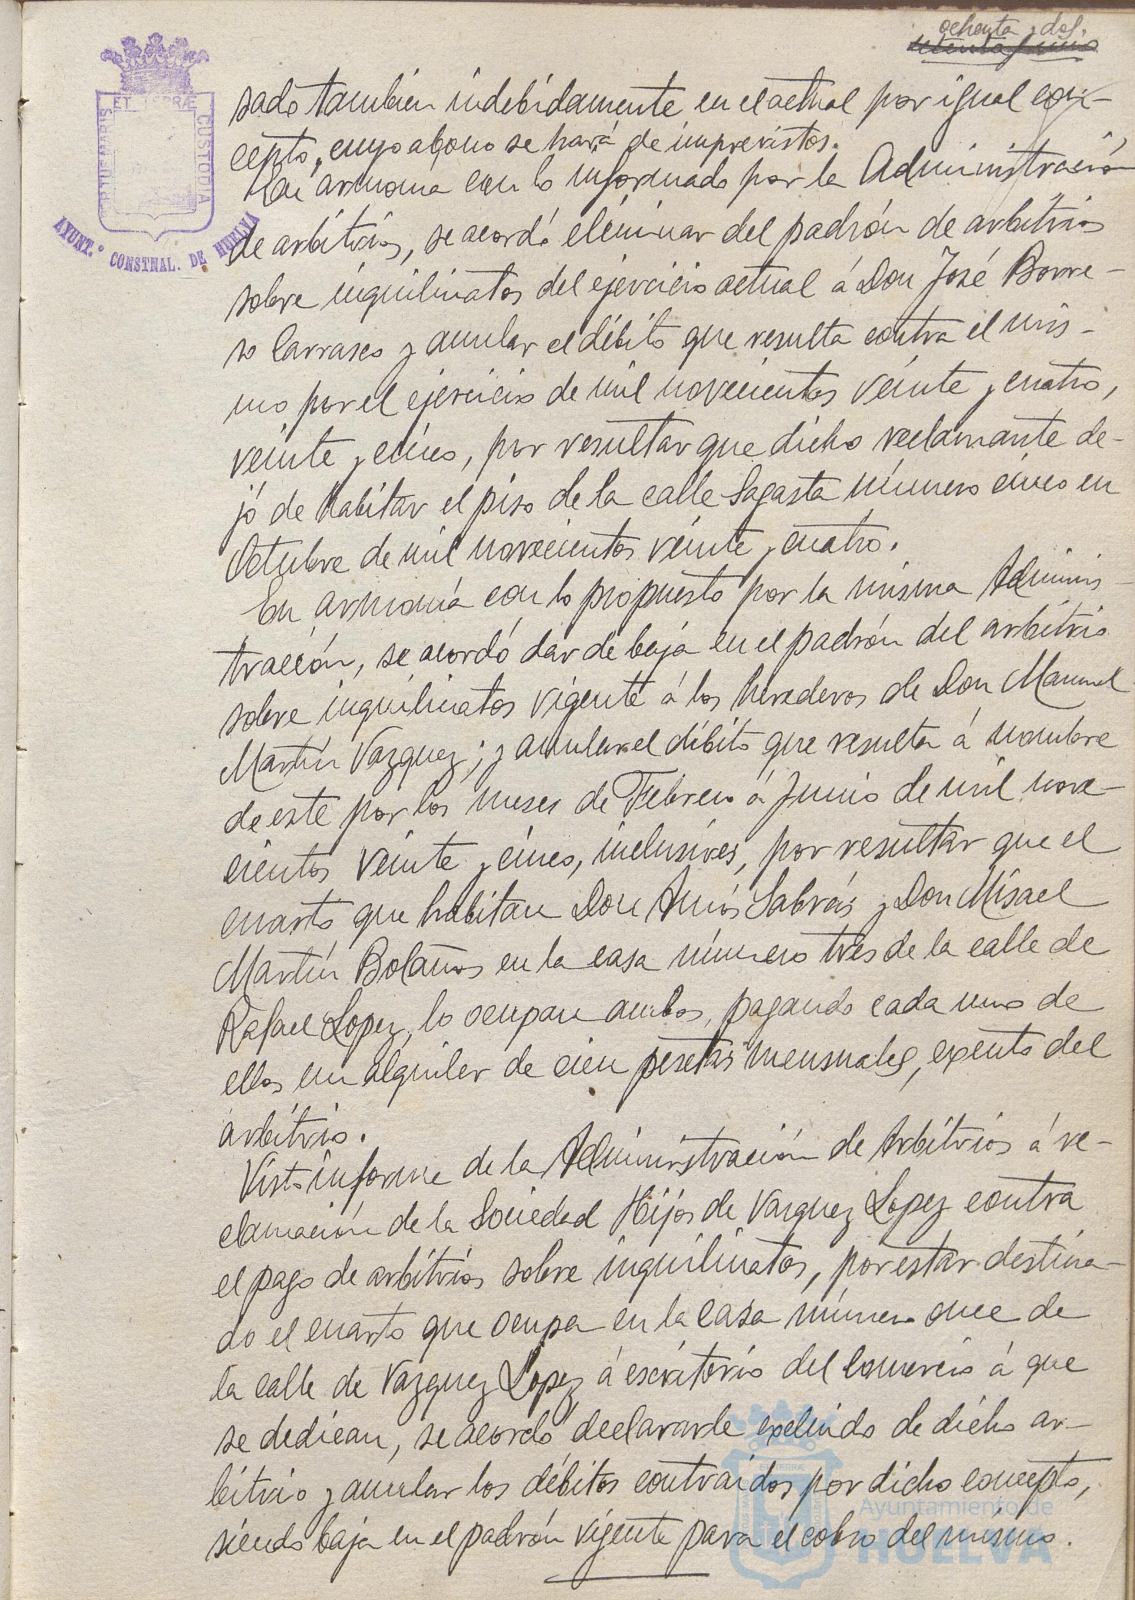 ochenta y dos.
setenta y uno
PORTUS MARIS ET TERRÆ CUSTODIA
AYUNT.º CONSTNAL. DE HUELVA
sado también indebidamente en el actual por igual con-
cepto, cuyo abono se hará de imprevistos.
En armonía con lo informado por la Administración
de arbitrios, se acordó eliminar del padrón de arbitrios
sobre inquilinatos del ejercicio actual á Don José Borre-
ro Carrasco y anular el débito que resulta contra el mis-
mo por el ejercicio de mil novecientos veinte y cuatro,
veinte y cinco, por resultar que dicho reclamante de-
jó de habitar el piso de la calle Sagasta número cinco en
Octubre de mil novecientos veinte y cuatro.
En armonía con lo propuesto por la misma Adminis-
tración, se acordó dar de baja en el padrón del arbitrio
sobre inquilinatos vigente á los herederos de Don Manuel
Martín Vazquez; y anular el débito que resulta á nombre
de este por los meses de Febrero á Junio de mil nove-
cientos veinte y cinco, inclusives, por resultar que el
cuarto que habitan Don Amós Sabrás y Don Misael
Martín Bolaños en la casa número tres de la calle de
Rafael Lopez, lo ocupan ambos, pagando cada uno de
ellos un alquiler de cien pesetas mensuales, exento del
arbitrio.
Visto informe de la Administración de Arbitrios á re-
clamación de la Sociedad Hijos de Vazquez Lopez contra
el pago de arbitrios sobre inquilinatos, por estar destina-
do el cuarto que ocupa en la casa número once de
la calle de Vazquez Lopez á escritorio del comercio á que
se dedican, se acordó declararle excluido de dicho ar-
bitrio y anular los débitos contraidos por dicho concepto,
siendo baja en el padrón vigente para el cobro del mismo.
Ayuntamiento de
HUELVA